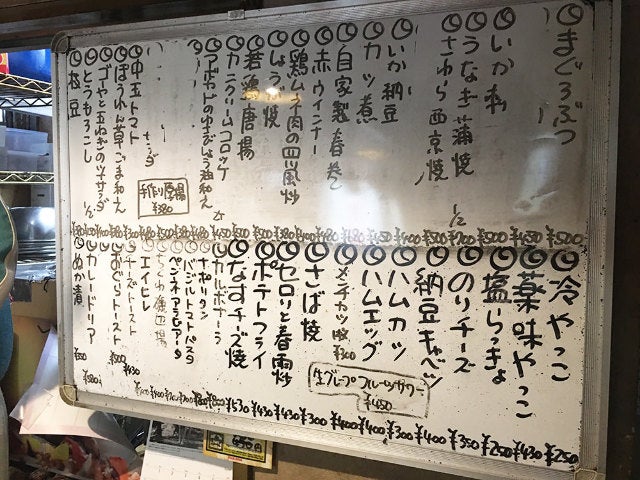 まぐろぶつ ¥500
いか刺 ¥450
うなぎ蒲焼 1/2 ¥700
さわら西京焼 ¥500
いか納豆 ¥400
カツ煮 ¥450
自家製春巻
赤ウインナー
鶏ムネ肉の四川風炒
しょうが焼
若鶏唐揚
カニクリームコロッケ
アボカドのゆずしょうゆ和え
手作り厚揚
¥380
中玉トマト
ほうれん草ごま和え
ゴーヤと玉ねぎのツナサラダ
とうもろこし 1/2
枝豆
冷やっこ ¥250
薬味やっこ ¥430
塩らっきょ ¥250
のりチーズ ¥350
納豆キャベツ ¥400
ハムカツ ¥300
ハムエッグ ¥400
メンチカツ 1枚 ¥200
さば焼 ¥300
セロリと春雨炒 ¥430
ポテトフライ ¥430
なすチーズ焼 ¥530
生グレープフルーツサワー
¥450
カルボナーラ
ナポリタン
バジルトマトパスタ
ペンネアラビアータ
ちくわ磯辺揚
エイヒレ
チーズトースト ¥430
おぐらトースト ¥500
カレードリア ¥580
ぬか漬 ¥350